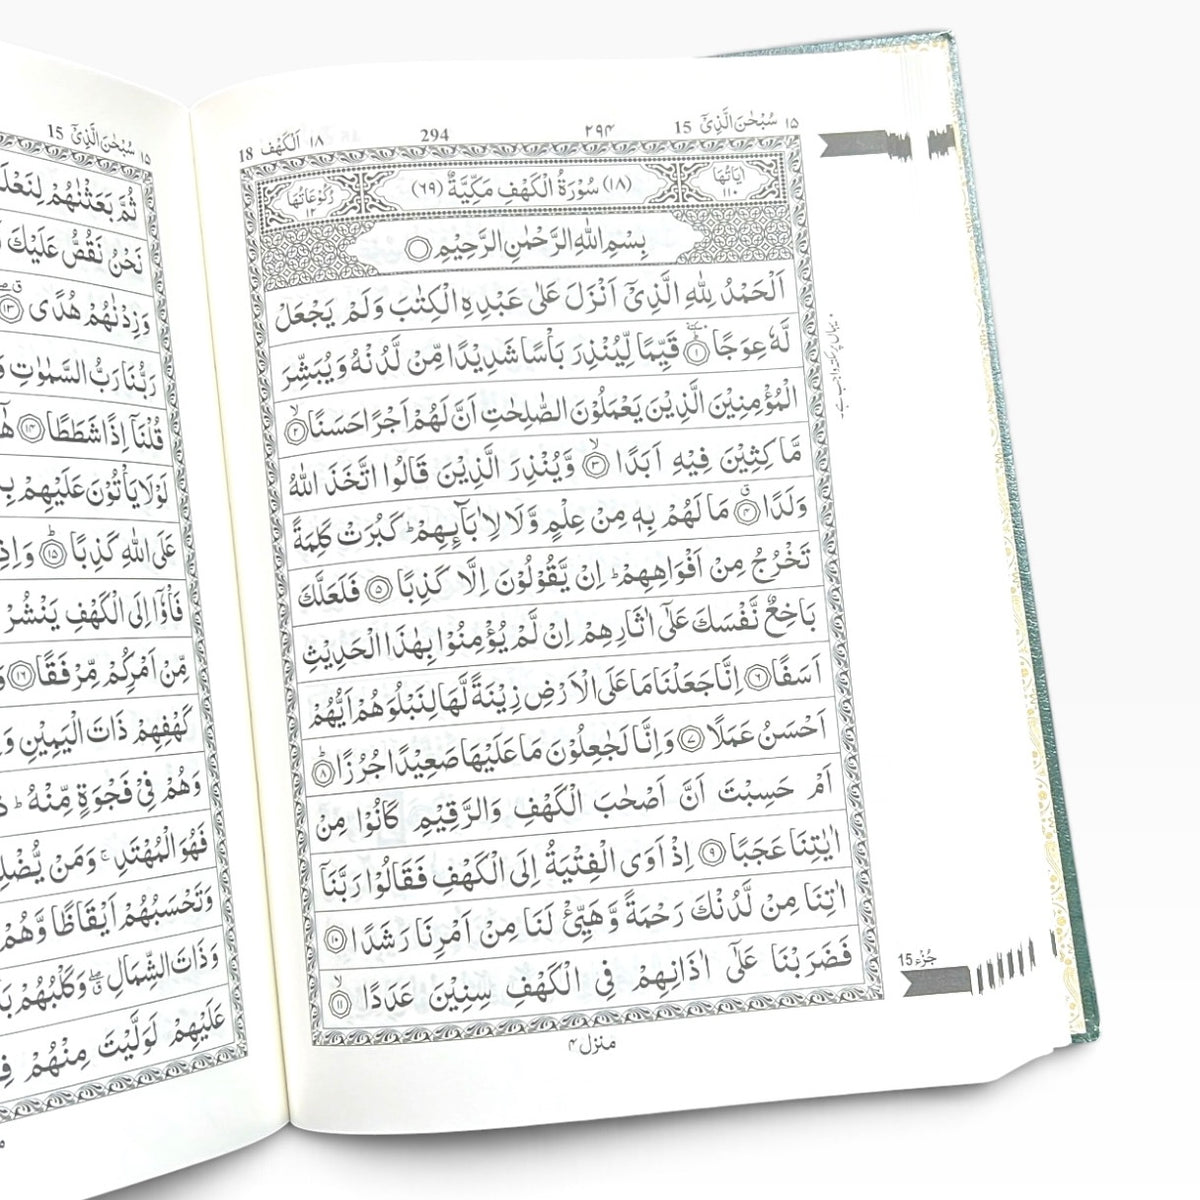 ۱۵ سُبْحٰنَ الَّذِیْۤ 15 ۲۹۴ 294 ۱۸ اَلْكَهْف 18
اٰیَاتُهَا ۱۱۰ (۱۸) سُوْرَةُ الْكَهْفِ مَكِّیَّةٌ (۶۹) رُكُوْعَاتُهَا ۱۲
بِسْمِ اللّٰهِ الرَّحْمٰنِ الرَّحِیْمِ
اَلْحَمْدُ لِلّٰهِ الَّذِیْۤ اَنْزَلَ عَلٰی عَبْدِهِ الْكِتٰبَ وَلَمْ یَجْعَلْ
لَّهٗ عِوَجًا ۱ قَیِّمًا لِّیُنْذِرَ بَاْسًا شَدِیْدًا مِّنْ لَّدُنْهُ وَیُبَشِّرَ
الْمُؤْمِنِیْنَ الَّذِیْنَ یَعْمَلُوْنَ الصّٰلِحٰتِ اَنَّ لَهُمْ اَجْرًا حَسَنًا ۲
مَّاكِثِیْنَ فِیْهِ اَبَدًا ۳ وَّیُنْذِرَ الَّذِیْنَ قَالُوا اتَّخَذَ اللّٰهُ
وَلَدًا ۴ مَا لَهُمْ بِهٖ مِنْ عِلْمٍ وَّلَا لِاٰبَآىِٕهِمْ ؕ كَبُرَتْ كَلِمَةً
تَخْرُجُ مِنْ اَفْوَاهِهِمْ ؕ اِنْ یَّقُوْلُوْنَ اِلَّا كَذِبًا ۵ فَلَعَلَّكَ
بَاخِعٌ نَّفْسَكَ عَلٰۤی اٰثَارِهِمْ اِنْ لَّمْ یُؤْمِنُوْا بِهٰذَا الْحَدِیْثِ
اَسَفًا ۶ اِنَّا جَعَلْنَا مَا عَلَی الْاَرْضِ زِیْنَةً لَّهَا لِنَبْلُوَهُمْ اَیُّهُمْ
اَحْسَنُ عَمَلًا ۷ وَاِنَّا لَجٰعِلُوْنَ مَا عَلَیْهَا صَعِیْدًا جُرُزًا ؕ ۸
اَمْ حَسِبْتَ اَنَّ اَصْحٰبَ الْكَهْفِ وَالرَّقِیْمِ كَانُوْا مِنْ
اٰیٰتِنَا عَجَبًا ۹ اِذْ اَوَی الْفِتْیَةُ اِلَی الْكَهْفِ فَقَالُوْا رَبَّنَاۤ
اٰتِنَا مِنْ لَّدُنْكَ رَحْمَةً وَّهَیِّئْ لَنَا مِنْ اَمْرِنَا رَشَدًا ۱۰
فَضَرَبْنَا عَلٰۤی اٰذَانِهِمْ فِی الْكَهْفِ سِنِیْنَ عَدَدًا ۱۱
منزل۴
جُزْء 15
۱۵ سُبْحٰنَ الَّذِیْۤ 15
ثُمَّ بَعَثْنٰهُمْ لِنَعْلَ
نَحْنُ نَقُصُّ عَلَیْكَ
وَزِدْنٰهُمْ هُدًی ۱۳
رَبُّنَا رَبُّ السَّمٰوٰتِ
قُلْنَاۤ اِذًا شَطَطًا ۱۴
لَوْلَا یَاْتُوْنَ عَلَیْهِمْ
عَلَی اللّٰهِ كَذِبًا ؕ ۱۵ وَاِذِ
فَاْوٗۤا اِلَی الْكَهْفِ یَنْشُرْ
مِّنْ اَمْرِكُمْ مِّرْفَقًا ۱۶
كَهْفِهِمْ ذَاتَ الْیَمِیْنِ
وَهُمْ فِیْ فَجْوَةٍ مِّنْهُ ؕ
فَهُوَ الْمُهْتَدِ ۚ وَمَنْ یُّضْلِ
وَتَحْسَبُهُمْ اَیْقَاظًا وَّهُمْ
وَذَاتَ الشِّمَالِ ۖ وَكَلْبُهُمْ
عَلَیْهِمْ لَوَلَّیْتَ مِنْهُمْ